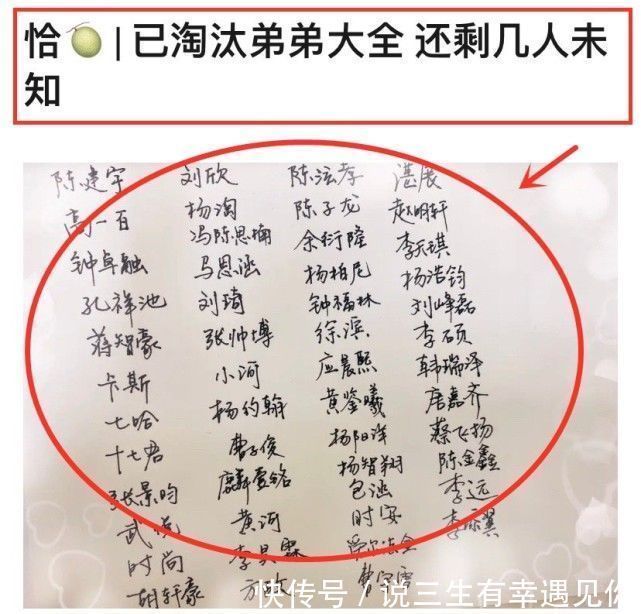 恰🍈 | 已淘汰弟弟大全 还剩几人未
知
陈建宇 刘欣 陈泫孝 湛展
高一百 杨淘 陈子龙 赵明轩
钟卓融 冯陈思楠 余衍隆 李天琪
孔祥池 马恩涵 杨柏尼 杨浩钧
蒋智豪 刘琦 钟福林 刘峰磊
卡斯 张帅博 徐滨 李硕
七哈 小河 应晨熙 韩瑞泽
十七君 杨约翰 黄鉴曦 唐嘉齐
张景昀 曹子俊 杨阳洋 蔡飞扬
武悦 麟壹铭 杨智翔 陈金鑫
时尚 黄河 包涵 李远
胡轩豪 李昊霖 时安
快传号 / 说三生有幸遇见你